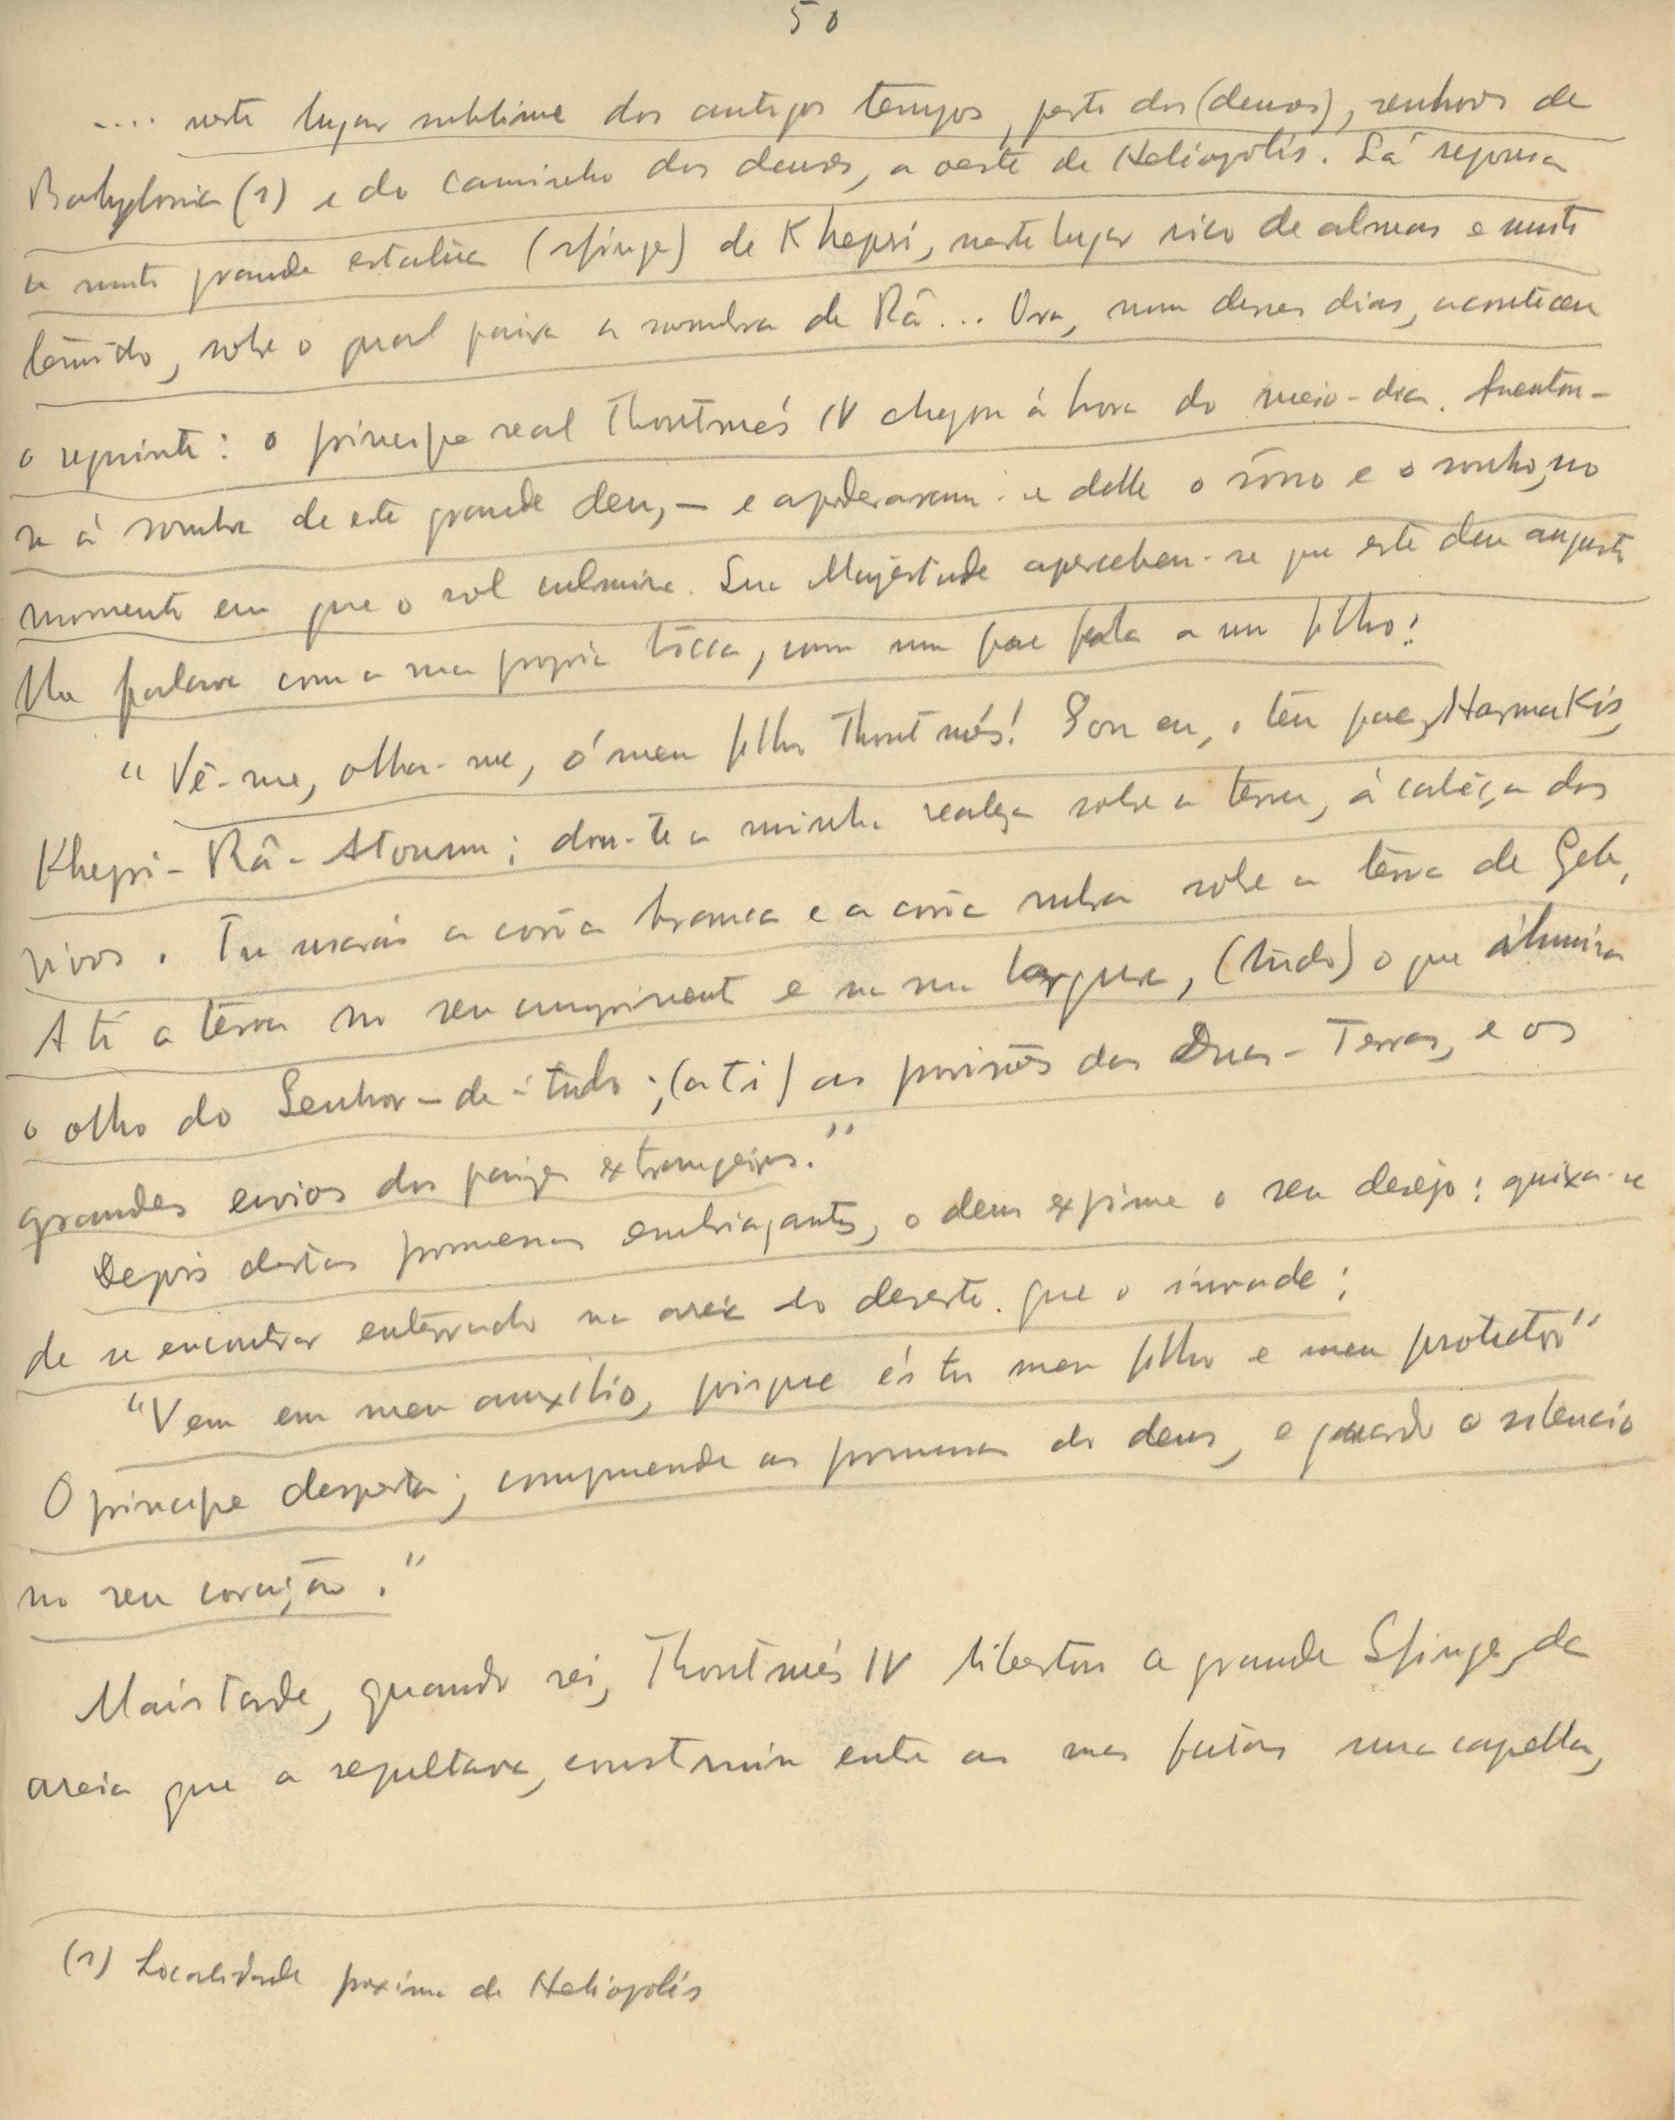 50
.... neste lugar sublime dos antigos tempos, perto dos (deuses), senhores de
Babylonia (1) e do caminho dos deuses, a oeste de Heliopolis. Lá repousa
a muito grande estatua (sfinge) de Khepri, neste lugar rico de almas e muito
temido, sobre o qual paira a sombra de Râ... Ora, num desses dias, aconteceu
o seguinte: o principe real Thoutmés IV chegou á hora do meio-dia. Assentou-
se á sombra de este grande deus, — e apoderaram-se delle o sôno e o sonho, no
momento em que o sol culmina. Sua Majestade apercebeu-se que este deus augusto
lhe falava com a sua propria bôcca, como um pae fala a um filho:
"Vê-me, olha-me, ó meu filho Thoutmés! Sou eu, o teu pae, Harmakis,
Khepri-Râ-Atoum; dou-te a minha realeza sobre a terra, á cabêça dos
vivos. Tu usarás a corôa branca e a corôa rubra sobre a terra de Geb,
A ti a terra no seu comprimento e na sua largura, (tudo) o que illumina
o olho do Senhor-de-tudo; (a ti) as provisões das Duas-Terras, e os
grandes envios dos paizes extrangeiros."
Depois destas promessas embriagantes, o deus exprime o seu desejo: queixa-se
de se encontrar enterrado na areia do deserto que o invade:
"Vem em meu auxilio, porque és tu meu filho e meu protector"
O principe desperta; comprehende as promessas do deus, e guarda o silencio
no seu coração."
Mais tarde, quando rei, Thoutmés IV libertou a grande Sfinge, da
areia que a sepultava, construiu entre as suas patas uma capella,
(1) Localidade proxima de Heliopolis